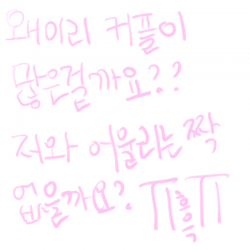 왜이리 커플이
많은걸까요??
저와 어울리는 짝
없을까요? ㅠ흑ㅠ